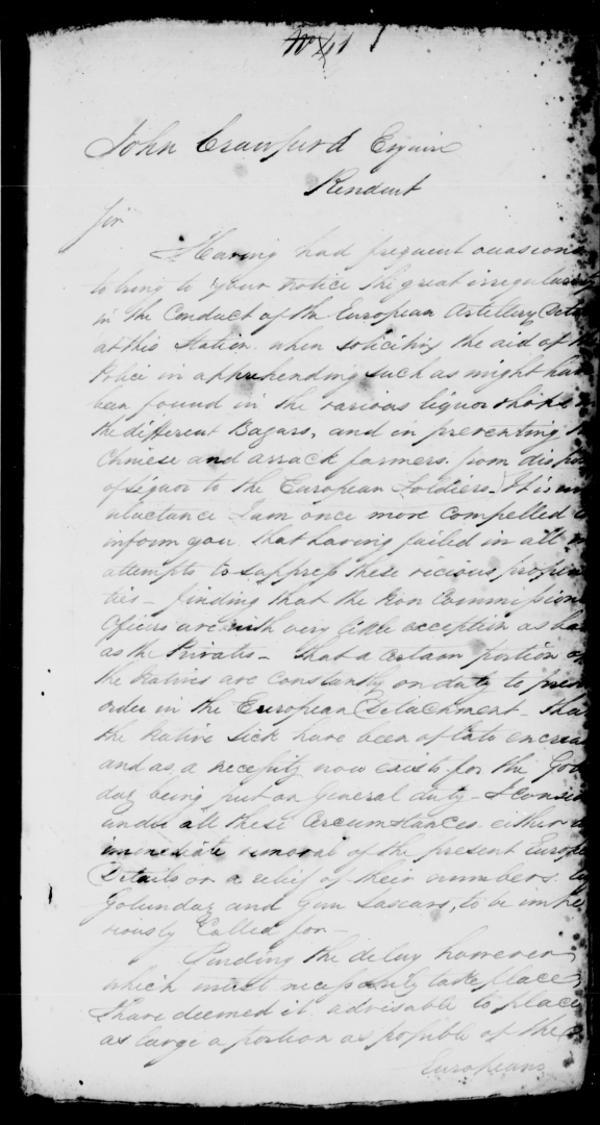 John Crawfurd Esquire
Resident
Sir
Having had frequent occasions
to bring to your notice the great irregularity
in the Conduct of the European Artillery Deta
at this Station. when soliciting the aid of th
Police in apprehending such as might hav
been found in the various liquor shops
the different Bazars, and in preventing
Chinese and arrack farmers. from dispo
of liquor to the European Soldiers_ It is
reluctance I am once more compelled
inform you that having failed in all
attempts to suppress these vicious propen
ties_ finding that the Non Commission
Officers are with very little exception as ba
as the Privates_ that a certain portion of
the Natives are constantly on duty to
order in the European Detachment_ tha
the Native Sick have been of late encrea
and as a necessity now exists for the Golun
daz being put on General duty_ I consi
under all these Circumstances. either
immediate removal of the present Europe
Details or a relief of their numbers. by
Golundaz and Gun Lascars, to be impe
riously Called for_
Pending the delay however
which must necessarily take place
I have deemed it advisable to place
as large a portion as possible of the
Europeans